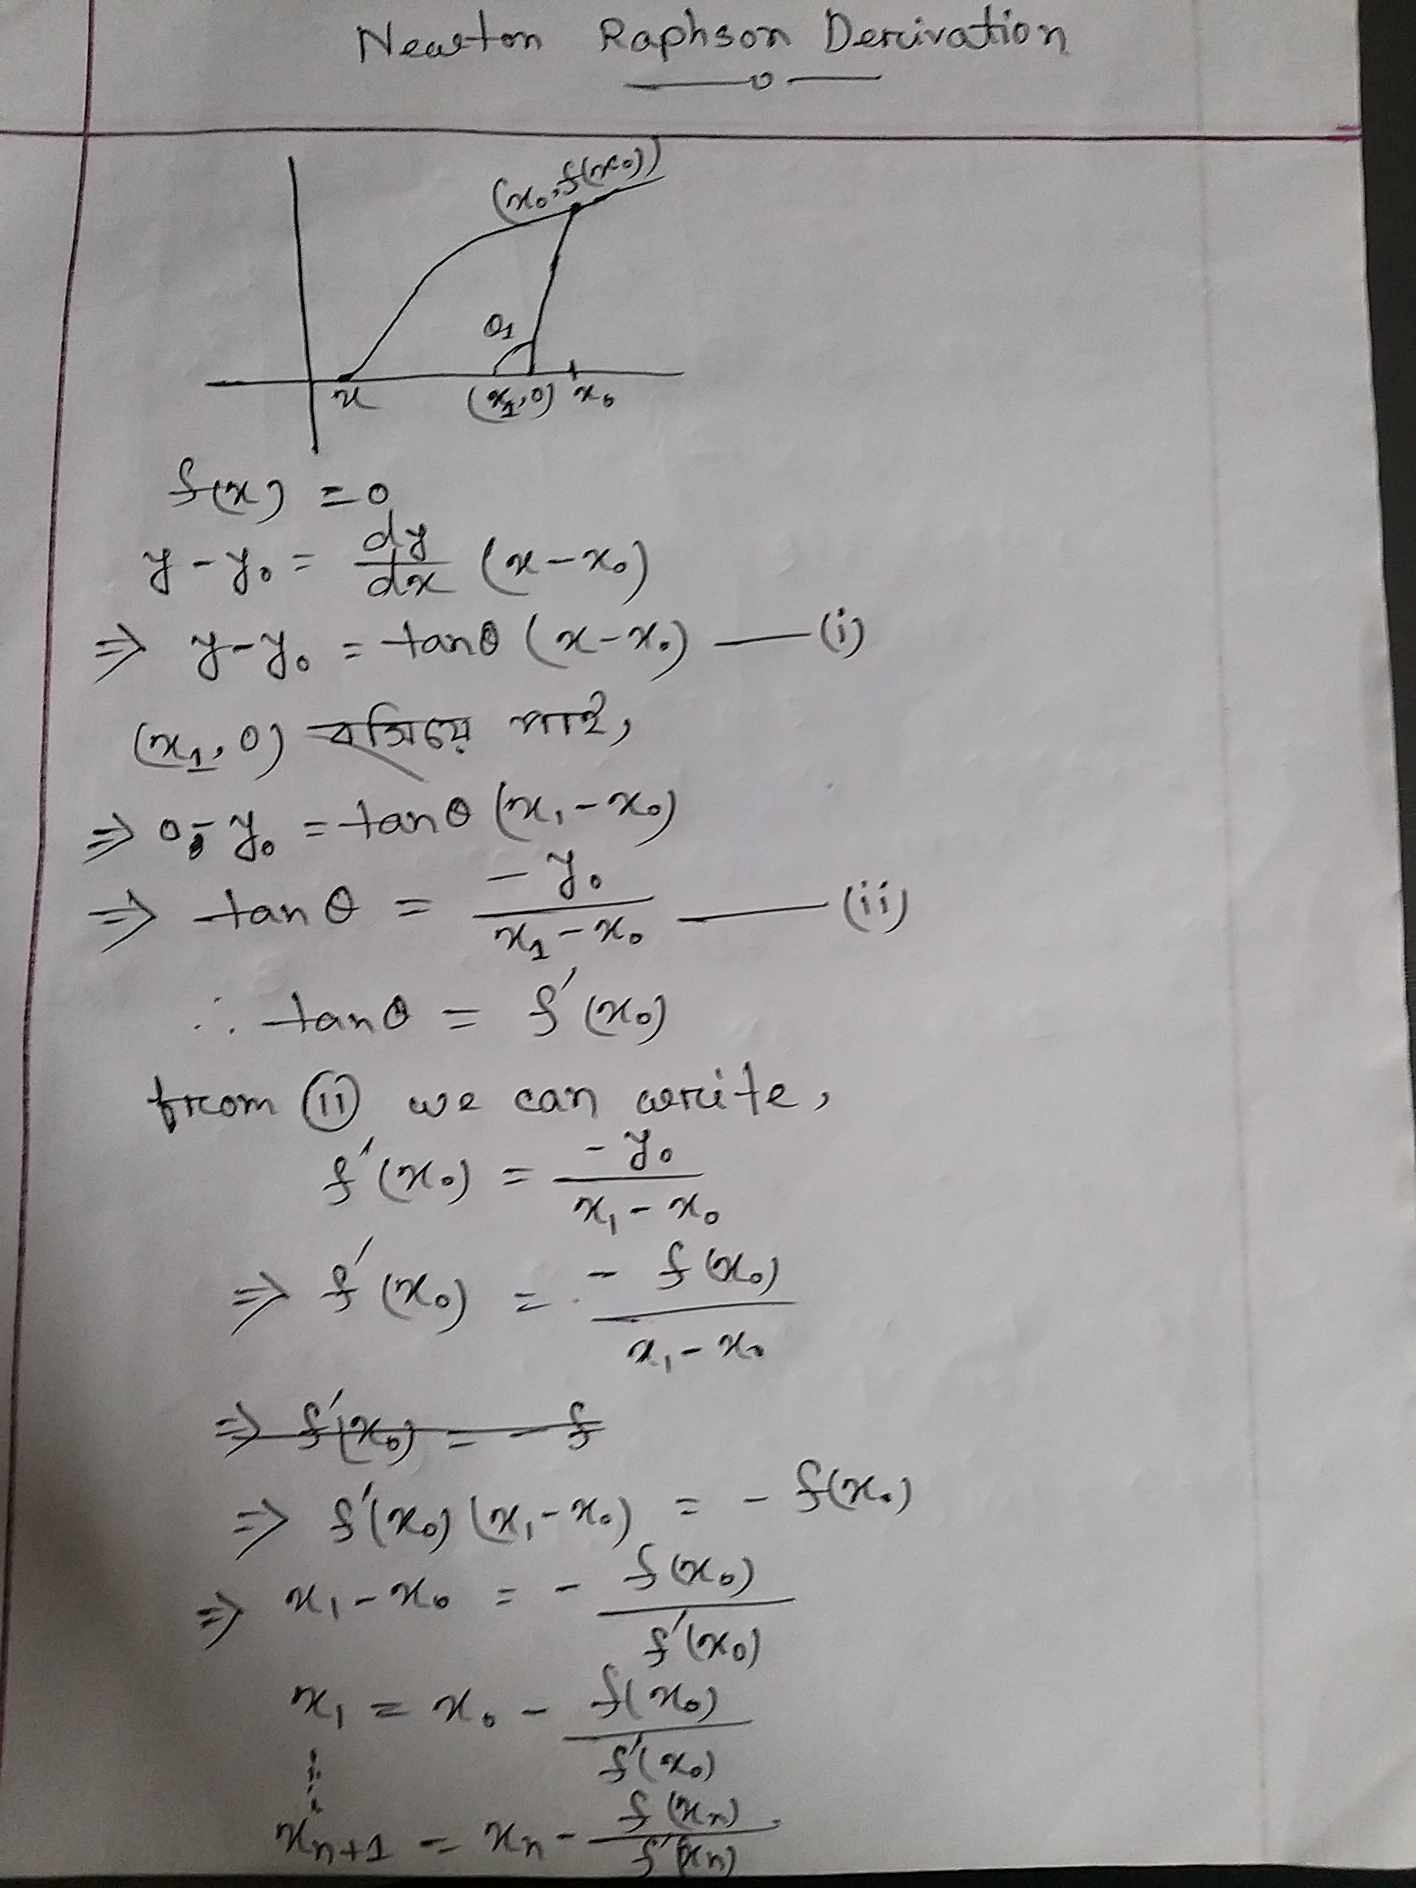 Newton Raphson Derivation
(x₀, f(x₀))
θ₁
x (x₁,0) x₀
f(x) = 0
y - y₀ = dy/dx (x - x₀)
⇒ y - y₀ = tanθ (x - x₀) — (i)
(x₁, 0) বসিয়ে পাই,
⇒ 0 - y₀ = tanθ (x₁ - x₀)
⇒ tanθ = -y₀/(x₁ - x₀) — (ii)
∴ tanθ = f′(x₀)
from (ii) we can write,
f′(x₀) = -y₀/(x₁ - x₀)
⇒ f′(x₀) = - f(x₀)/(x₁ - x₀)
⇒ f′(x₀) = - f
⇒ f′(x₀) (x₁ - x₀) = - f(x₀)
⇒ x₁ - x₀ = - f(x₀)/f′(x₀)
x₁ = x₀ - f(x₀)/f′(x₀)
⋮
xₙ₊₁ = xₙ - f(xₙ)/f′(xₙ)